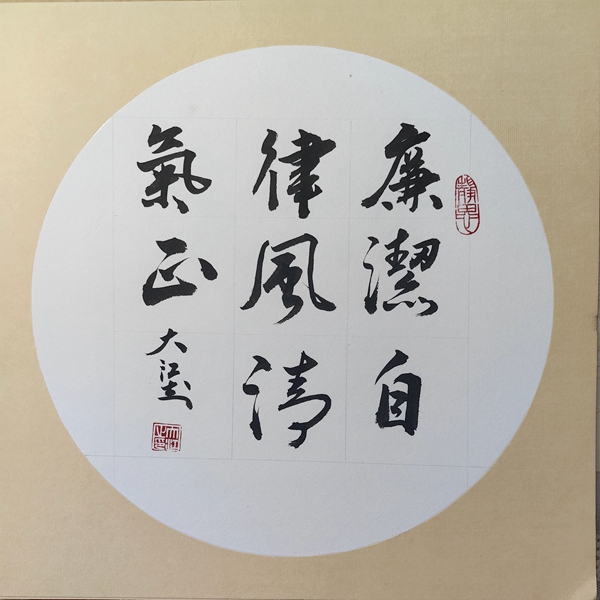 廉潔自
律風清
氣正
大